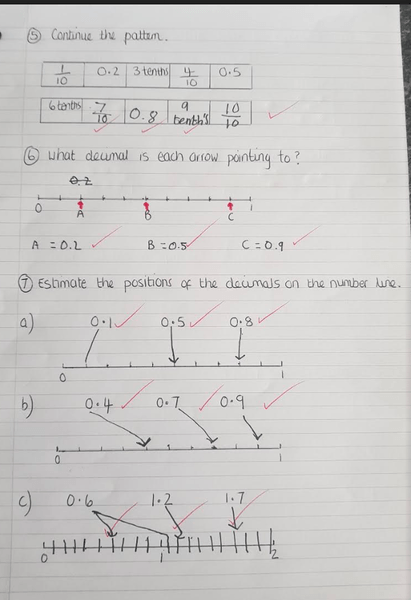 ⑤ Continue the pattern.
1/10 0.2 3 tenths 4/10 0.5
6 tenths 7/10 0.8 9 tenth's 10/10
⑥ What decimal is each arrow pointing to?
0.2
0 1
A B C
A = 0.2 B = 0.5 C = 0.9
⑦ Estimate the positions of the decimals on the number line.
a) 0.1 0.5 0.8
0 1
b) 0.4 0.7 0.9
0 1
c) 0.6 1.2 1.7
0 1 2